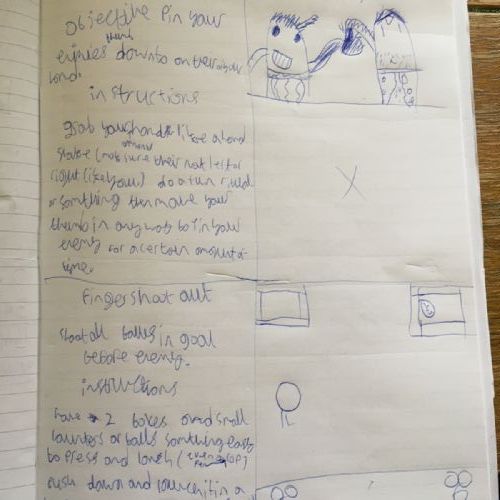 objective Pin your
thumb
enimes down to on ther
hand.
instructions
grab your hand like a hand
shake (make sure their not left or
right like your) do a
or something then move your
thumb in any way to Pin your
enemy for a certain amount of
time.
Finger shoot out
shoot all balls in goal
before enemy.
instructions
have 2 boxes and small
counters or balls something easy
to press and
push down and launch it in a